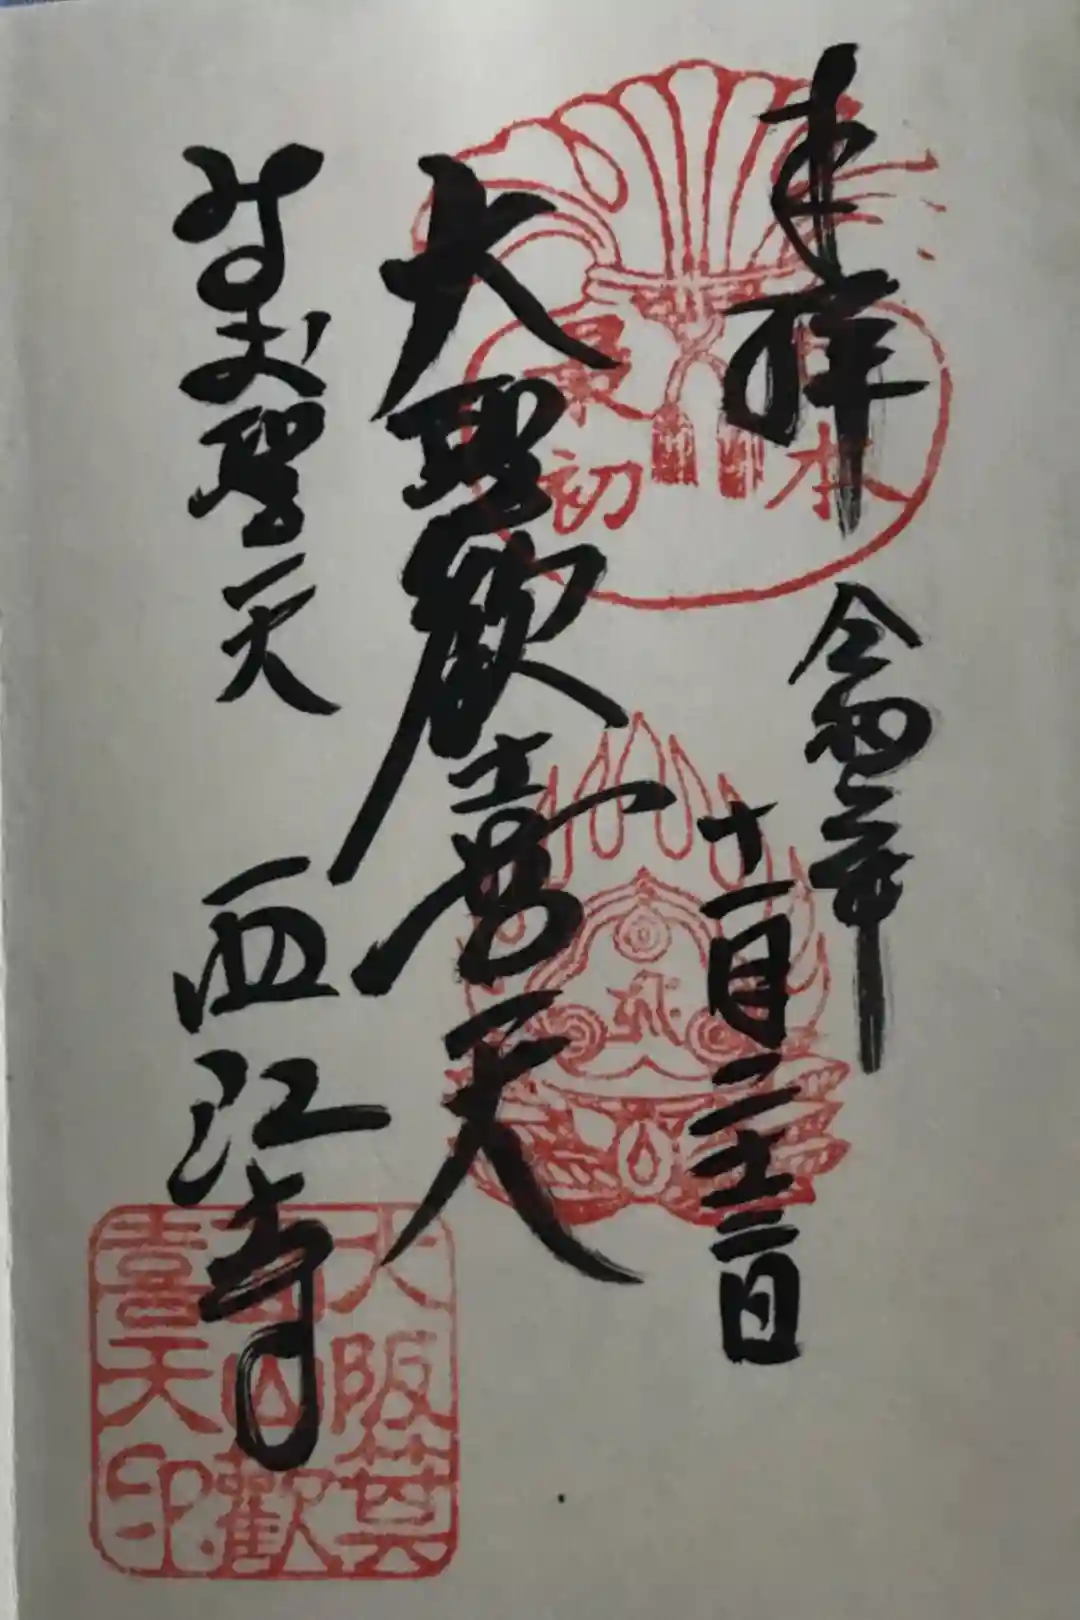 奉拝
令和二年
十一月二十三日
大聖歓喜天
みのお聖天
西江寺
日本
最初
大阪箕
面山歡
喜天印